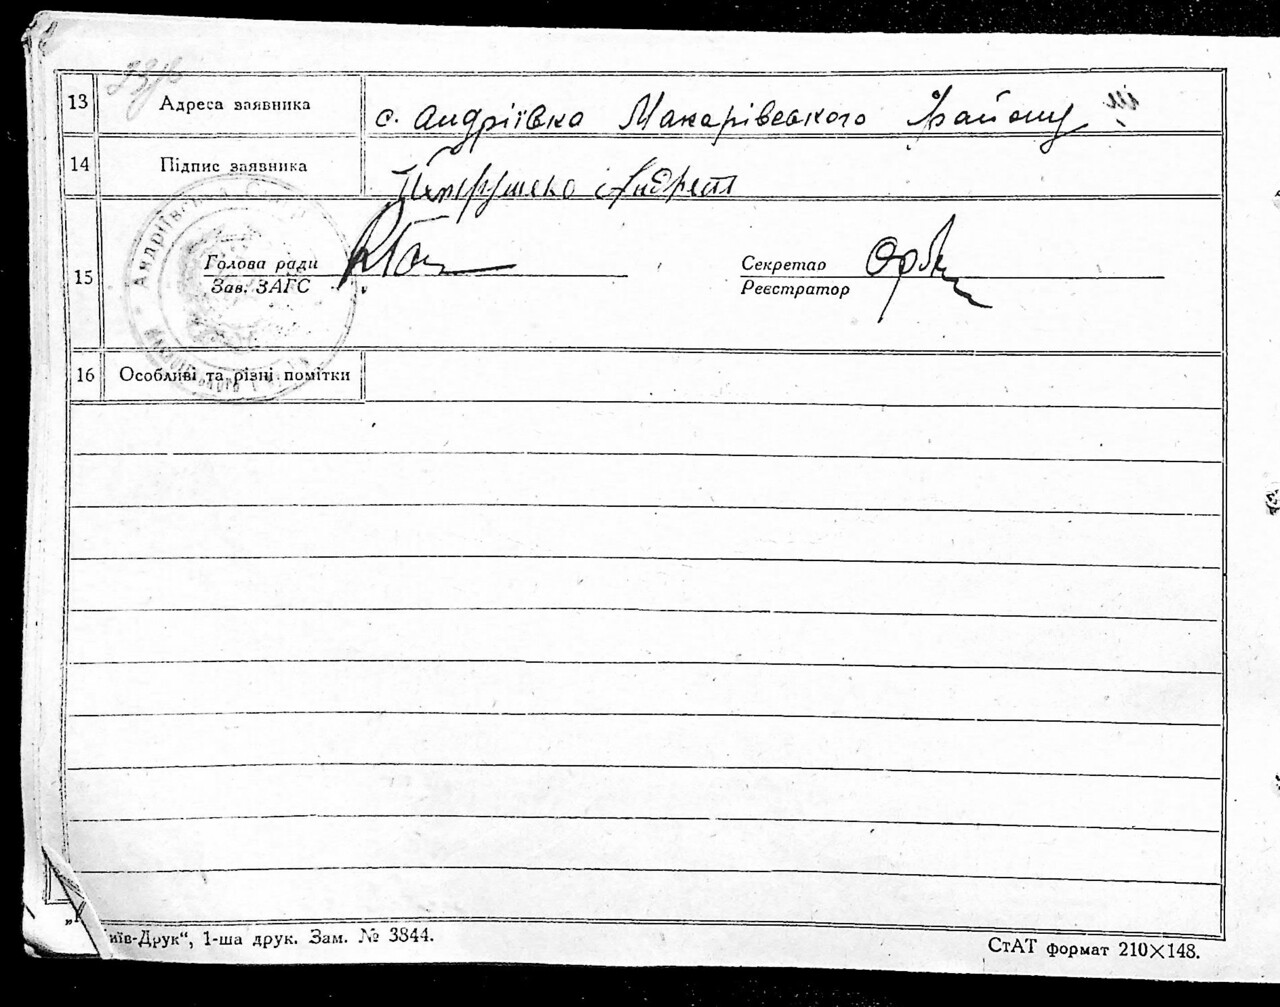 13 Адреса заявника с. Андріївка Макарівського Району
14 Підпис заявника Андрей
Андріївська
15 Голова ради Секретар
Зав. ЗАГС Реєстратор
16 Особливі та різні помітки
иїв-Друк“, 1-ша друк. Зам. № 3844.
СтАТ формат 210×148.